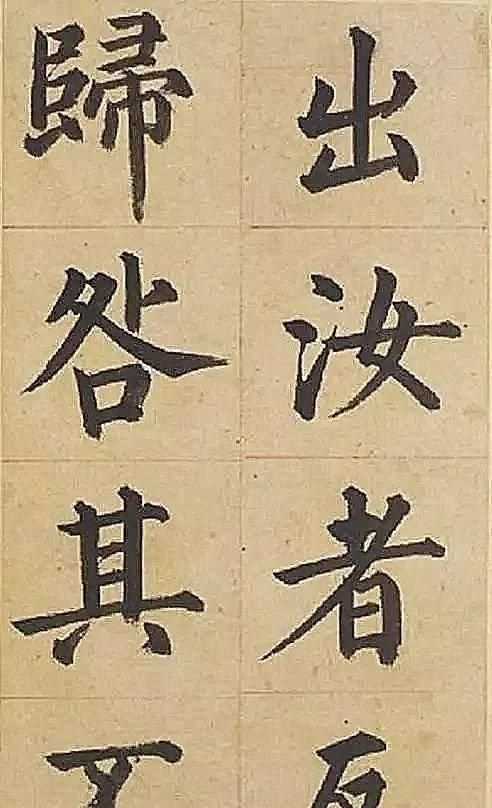 出汝者
歸咎其